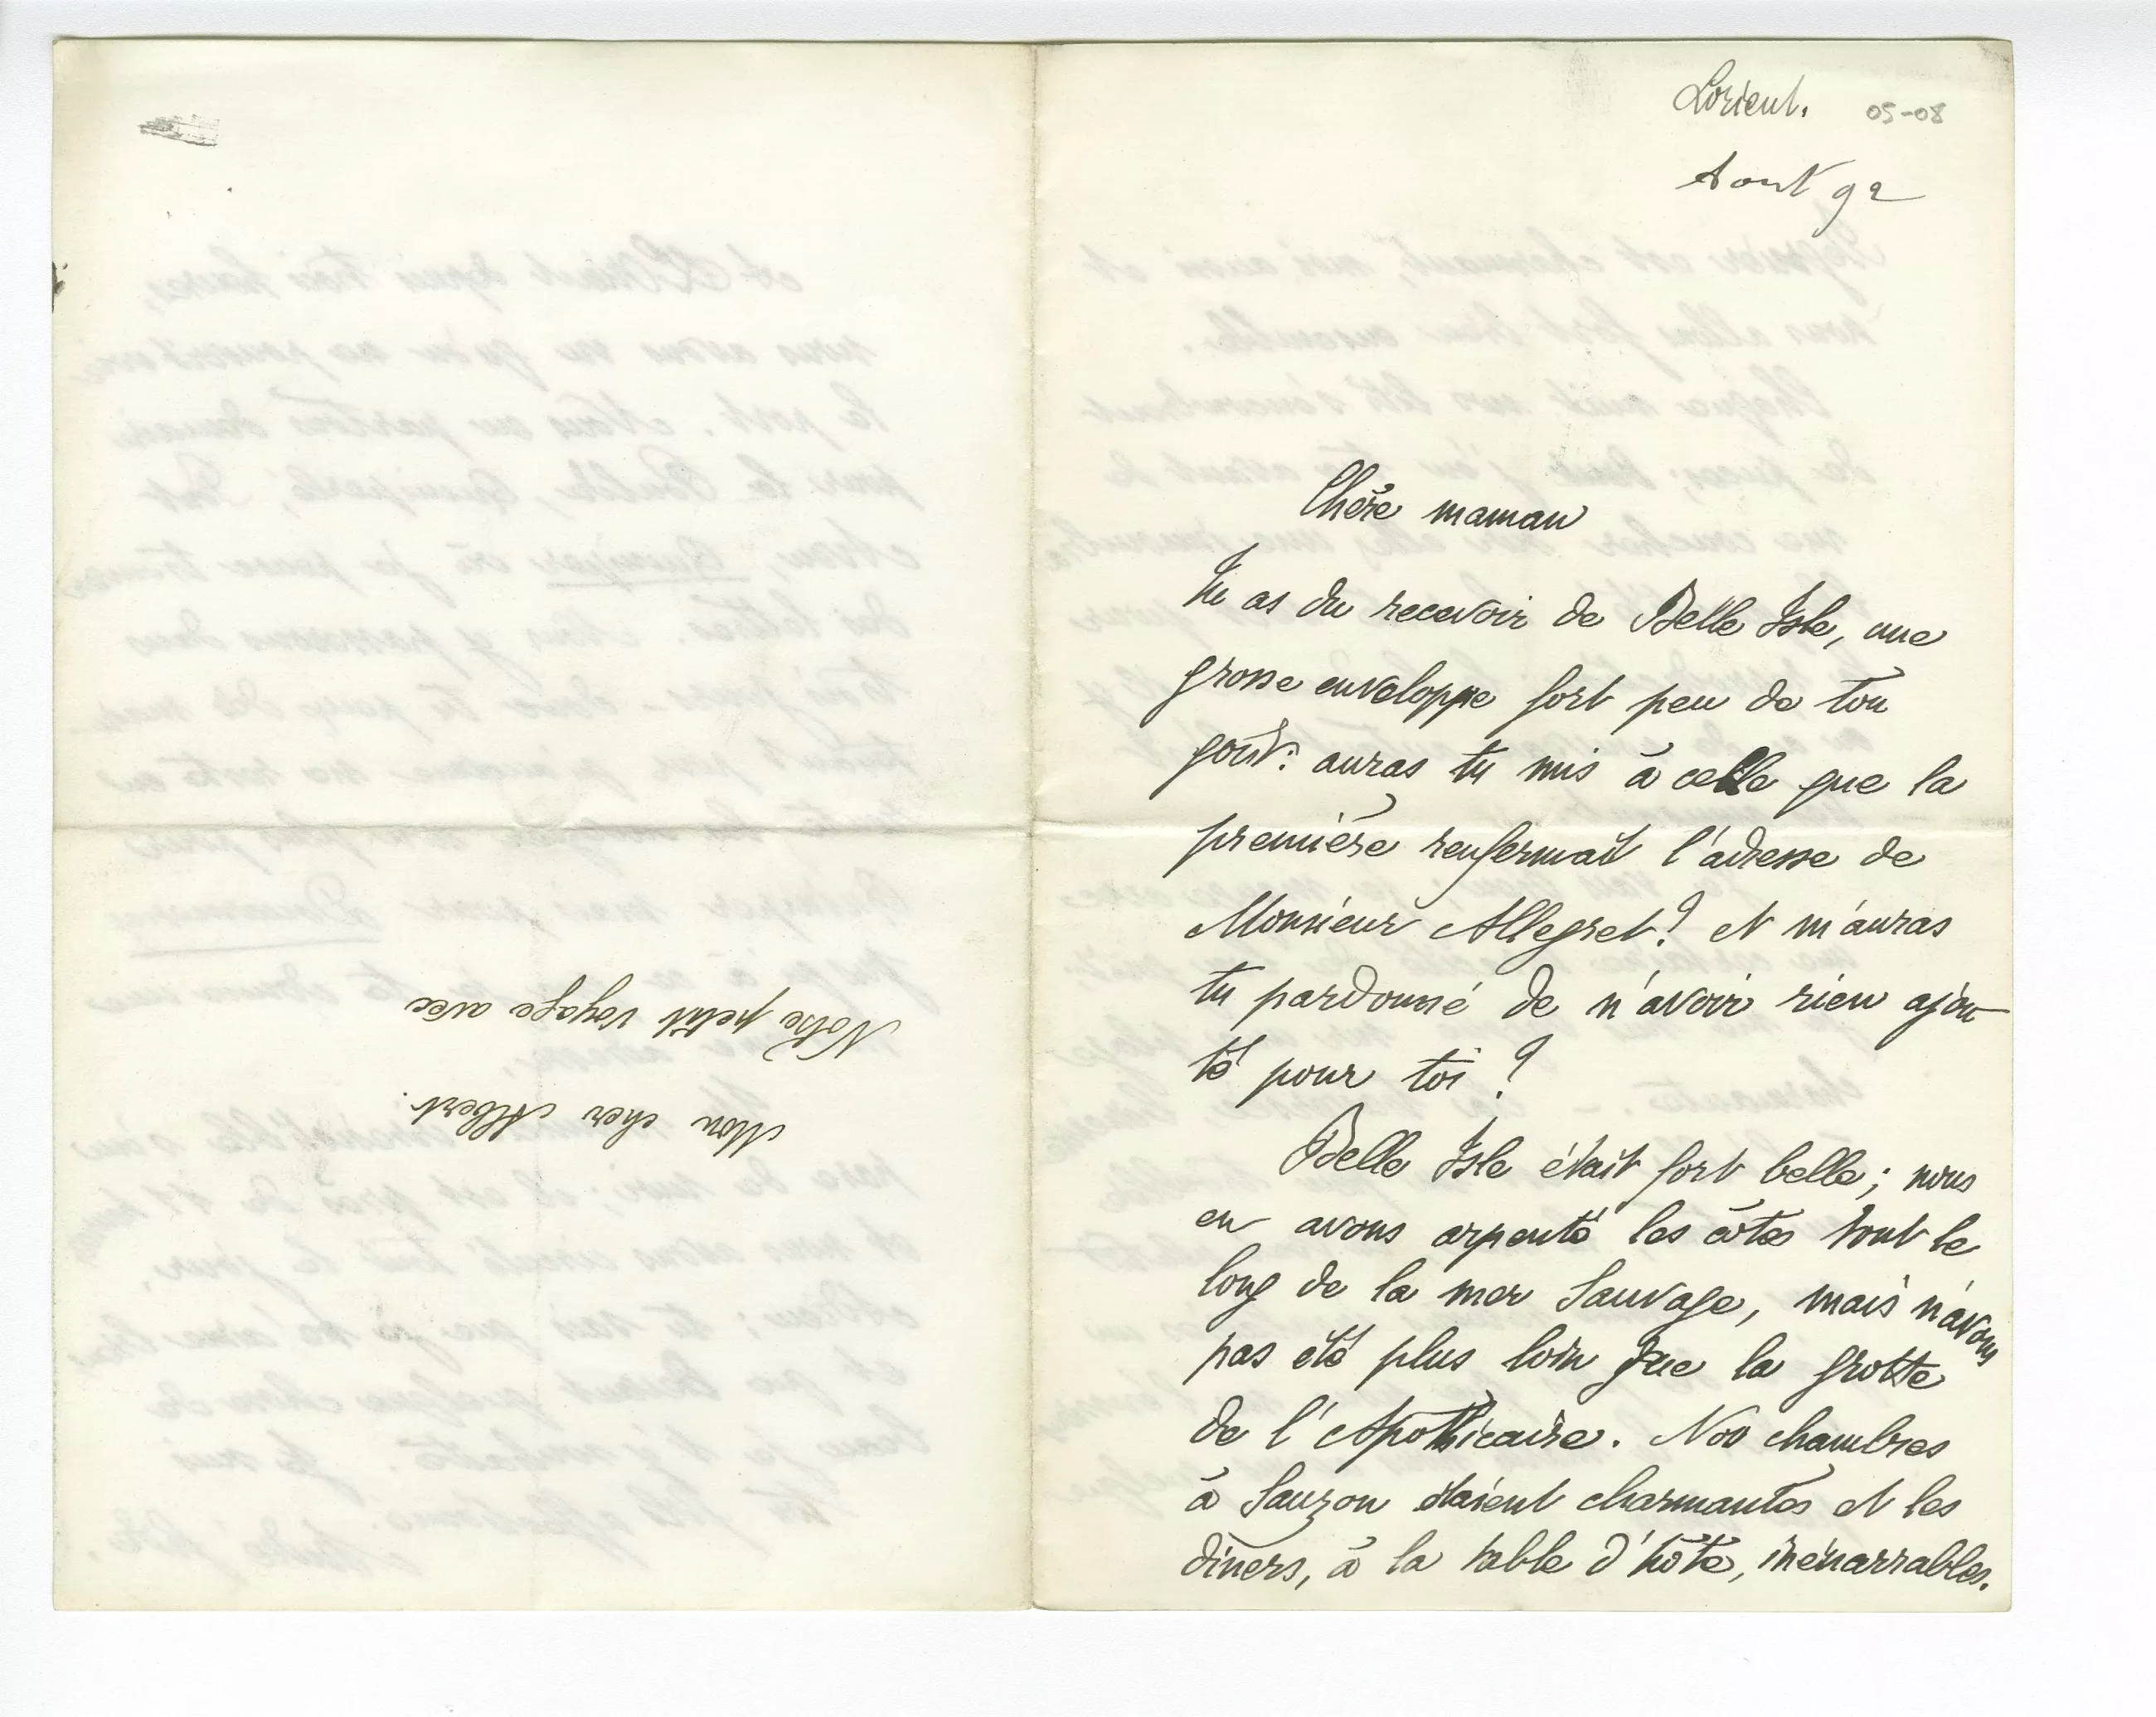 Lorient. 05-08
Aout 92
Chère maman
Tu as du recevoir de Belle Isle, une
grosse enveloppe fort peu de ton
goût: auras tu mis à celle que la
première renfermait l'adresse de
Monsieur Allegret? et m'auras
tu pardonné de n'avoir rien ajou
té pour toi?
Belle Isle était fort belle; nous
en avons arpenté les côtes tout le
long de la mer Sauvage, mais n'avons
pas été plus loin que la grotte
de l'Apothicaire. Nos chambres
à Sauzon étaient charmantes et les
dîners, à la table d'hôte, inénarrables.
Mon cher Albert.
Notre petit voyage avec